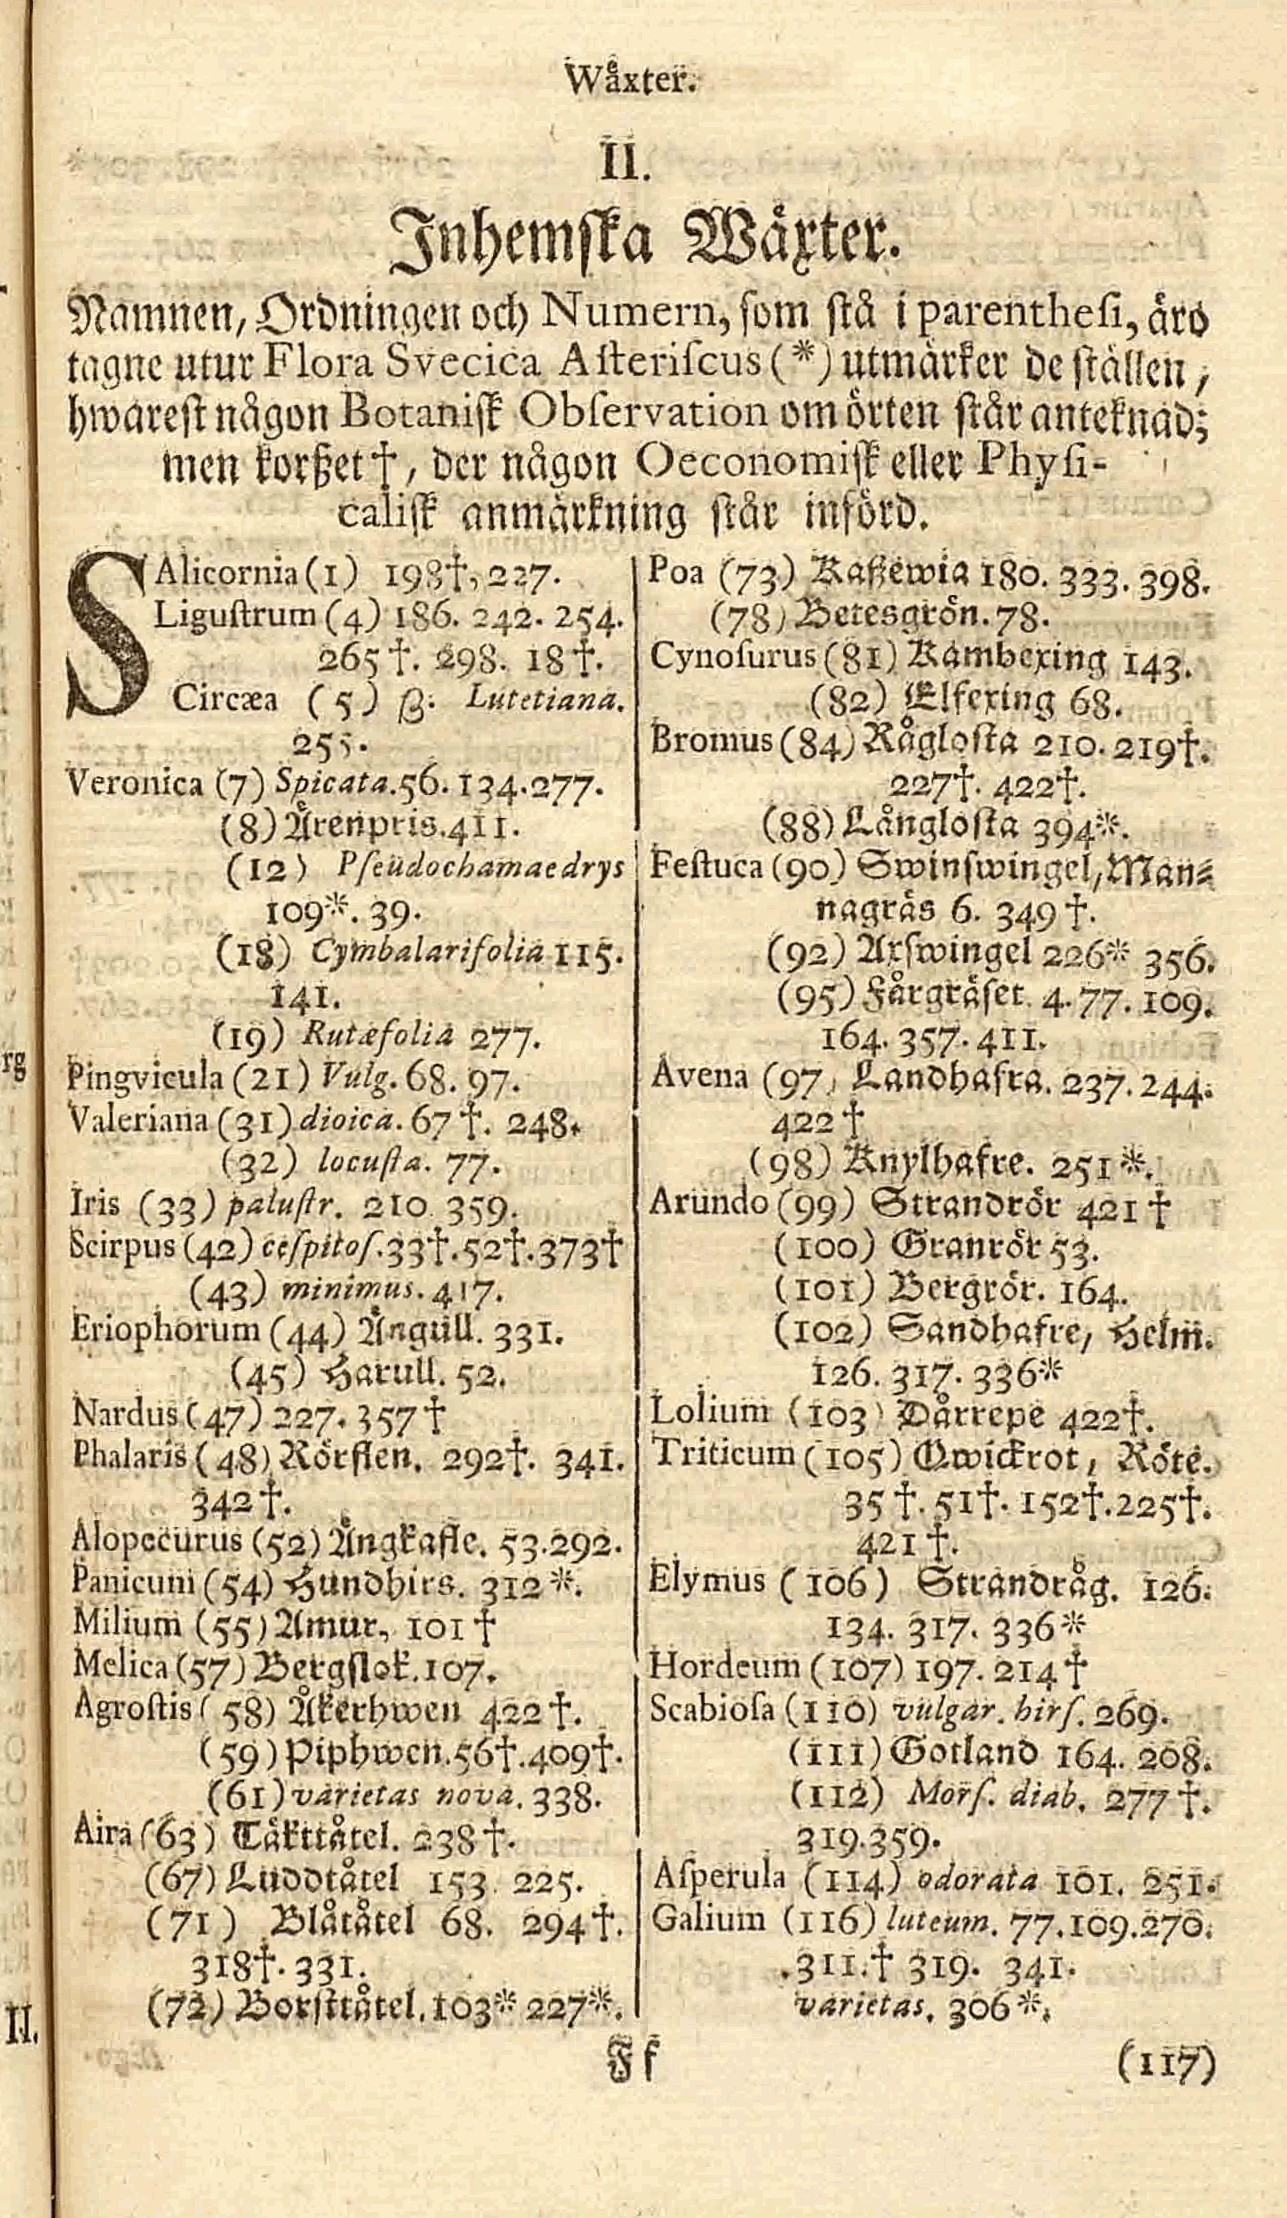 Wåxter.
II.
Inhemſka Wåxter.
Namnen, Ordningen och Numern, ſom ſtå i parentheſi, åro
tagne utur Flora Svecica Aſteriſcus (*) utmårker de ſtållen,
hwareſt någon Botaniſk Obſervation om örten ſtår anteknad;
men korßet †, der någon Oeconomiſk eller Phyſi-
caliſk anmårkning ſtår införd.
SAlicornia (1) 198†, 227.
Liguſtrum (4) 186. 242. 254.
265†. 298. 18†.
Circæa (5) β: Lutetiana.
255.
Veronica (7) Spicata. 56. 134. 277.
(8) Årenpris. 411.
(12) Pſeudochamaedrys
109*. 39.
(18) Cymbalarifolia 115.
141.
(19) Rutæfolia 277.
Pingvicula (21) Vulg. 68. 97.
Valeriana (31) dioica. 67†. 248.
(32) locuſta. 77.
Iris (33) paluſtr. 210. 359.
Scirpus (42) ceſpitoſ. 33†. 52†. 373†
(43) minimus. 417.
Eriophorum (44) Ångull. 331.
(45) Harull. 52.
Nardus (47) 227. 357†
Phalaris (48) Rörflen. 292†. 341.
342†.
Alopecurus (52) Ångkafle. 53. 292.
Panicum (54) Hundhirs. 312*.
Milium (55) Amur, 101†
Melica (57) Bergſlok. 107.
Agroſtis (58) Åkerhwen 422†.
(59) Piphwen. 56†. 409†.
(61) varietas nova. 338.
Aira (63) Tåkttåtel. 238†.
(67) Luddtåtel 153. 225.
(71) Blåtåtel 68. 294†.
318†. 331.
(72) Borſttåtel. 103* 227*.
Poa (73) Kaſſewia 180. 333. 398.
(78) Betesgrön. 78.
Cynoſurus (81) Kambexing 143.
(82) Elfexing 68.
Bromus (84) Rågloſta 210. 219†.
227†. 422†.
(88) Långloſta 394*.
Feſtuca (90) Swinſwingel, Man-
nagrås 6. 349†.
(92) Axſwingel 226* 356.
(95) Fårgråſet. 4. 77. 109.
164. 357. 411.
Avena (97) Landhafra. 237. 244.
422†
(98) Knylhafre. 251*.
Arundo (99) Strandrör 421†
(100) Granrör 53.
(101) Bergrör. 164.
(102) Sandhafre, Helm.
126. 317. 336*
Lolium (103) Dårrepe 422†.
Triticum (105) Qwickrot, Röte.
35†. 51†. 152†. 225†.
421†.
Elymus (106) Strandråg. 126.
134. 317. 336*
Hordeum (107) 197. 214†
Scabioſa (110) vulgar. hirſ. 269.
(111) Gotland 164. 208.
(112) Morſ. diab. 277†.
319. 359.
Aſperula (114) odorata 101. 251.
Galium (116) luteum. 77. 109. 270.
311. † 319. 341.
varietas. 306*.
Ff
(117)
rg
II.